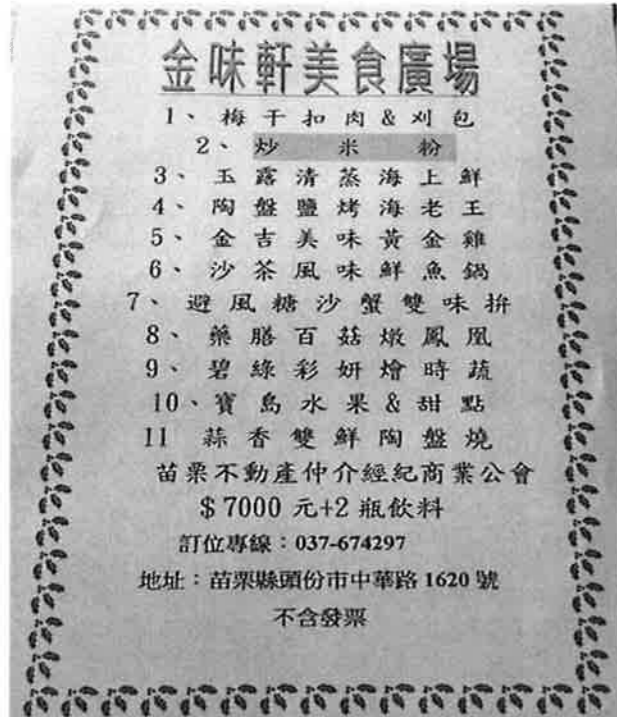 金味軒美食廣場
1、梅干扣肉&刈包
2、炒米粉
3、玉露清蒸海上鮮
4、陶盤鹽烤海老王
5、金吉美味黃金雞
6、沙茶風味鮮魚鍋
7、避風糖沙蟹雙味拚
8、藥膳百菇燉鳳凰
9、碧綠彩妍燴時蔬
10、寶島水果&甜點
11 蒜香雙鮮陶盤燒
苗栗不動產仲介經紀商業公會
$7000 元+2 瓶飲料
訂位專線：037-674297
地址：苗栗縣頭份市中華路 1620 號
不含發票